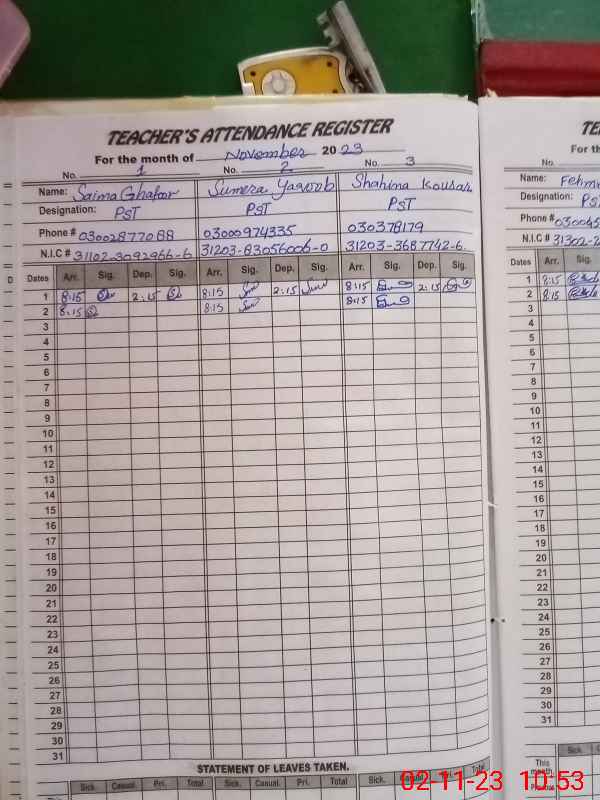 TEACHER'S ATTENDANCE REGISTER
For the month of November 20 23
No. 1 No. 2 No. 3
Name: Saima Ghafoor Sumera Yaqoob Shahina Kousar
Designation: PST PST PST
Phone # 03002877088 03000974335 030378179
N.I.C # 31102-3092966-6 31203-83056006-0 31203-3687742-6
Dates Arr. Sig. Dep. Sig. Arr. Sig. Dep. Sig. Arr. Sig. Dep. Sig.
1 8:15 2:15 8:15 2:15 8:15 2:15
2 8:15 8:15 8:15
3
4
5
6
7
8
9
10
11
12
13
14
15
16
17
18
19
20
21
22
23
24
25
26
27
28
29
30
31
STATEMENT OF LEAVES TAKEN.
Sick. Casual. Pri. Total Sick. Casual. Pri. Total Sick. Casual. Pri. Total
For th
No.
Name:
Designation: PS
Phone #
N.I.C # 31302-2
Dates Arr. Sig.
1 8:15
2 8:15
3
4
5
6
7
8
9
10
11
12
13
14
15
16
17
18
19
20
21
22
23
24
25
26
27
28
29
30
31
Sick.
This
month
02-11-23 10:53